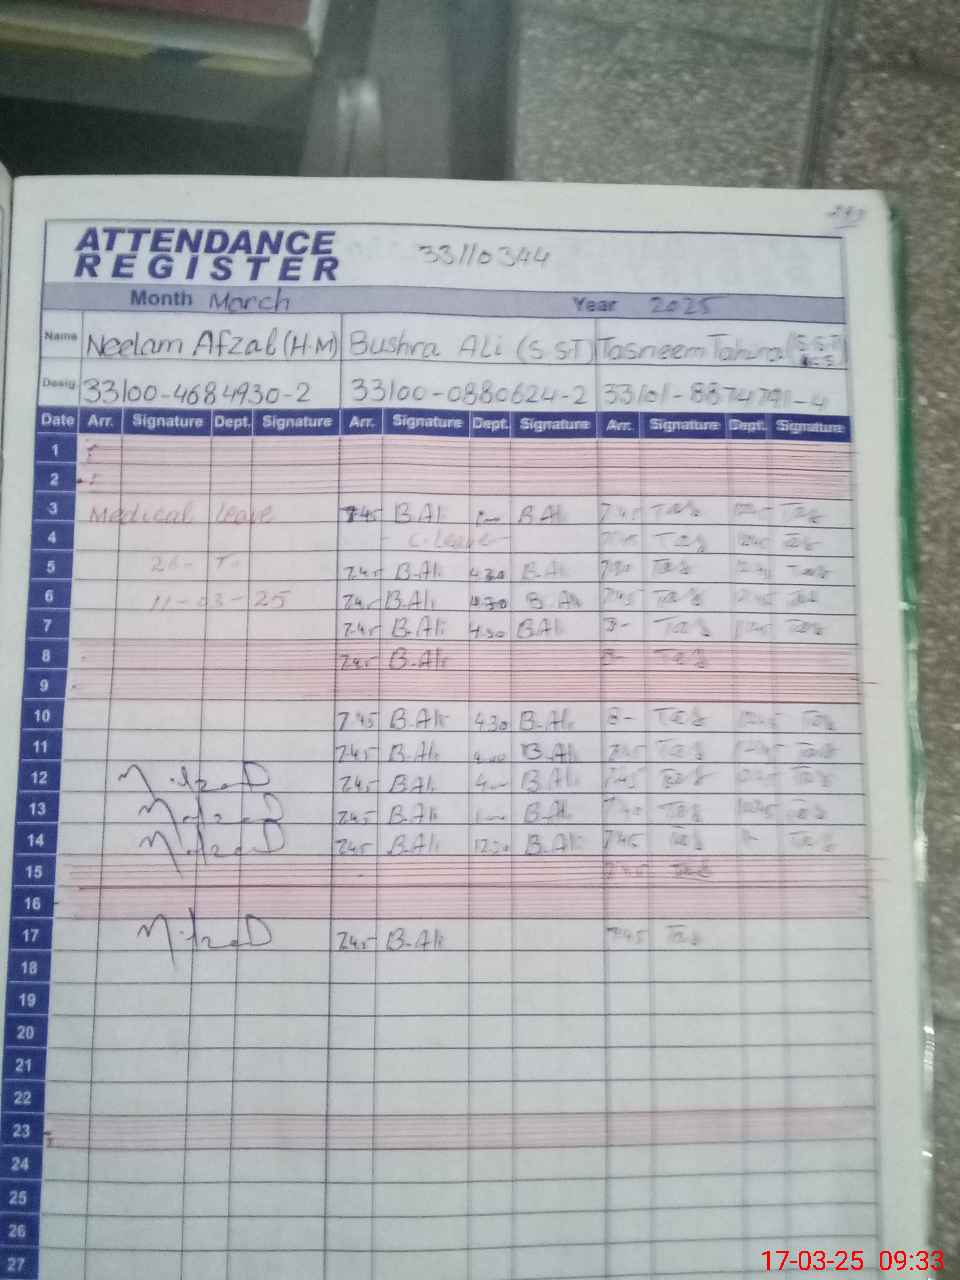 ATTENDANCE
REGISTER
33110344
Month March Year 2025
Name Neelam Afzal (H.M) Bushra Ali (S.S.T) Tasneem Tahira (S.S.T
Desig. 33100-4684930-2 33100-0880624-2 33101-8874791-4
Date Arr. Signature Dept. Signature Arr. Signature Dept. Signature Arr. Signature Dept. Signature
1
2
3 Medical leave 7.45 B.Ali B.Ali 7.45 Tas Tas
4 C.leave Tas Tas
5 7.45 B.Ali 4.30 B.Ali Tas Tas
6 11-03-25 7.45 B.Ali 4.30 B.Ali 7.45 Tas Tas
7 7.45 B.Ali 4.30 B.Ali 8- Tas Tas
8 7.45 B.Ali 8- Tas
9
10 7.45 B.Ali 4.30 B.Ali 8- Tas Tas
11 7.45 B.Ali B.Ali 7.45 Tas Tas
12 7.45 B.Ali B.Ali 7.45 Tas Tas
13 7.45 B.Ali B.Ali 7.40 Tas Tas
14 7.45 B.Ali 12.30 B.Ali 7.45 Tas Tas
15 7.45 Tas
16
17 7.45 B.Ali 7.45 Tas
18
19
20
21
22
23
24
25
26
27
17-03-25 09:33